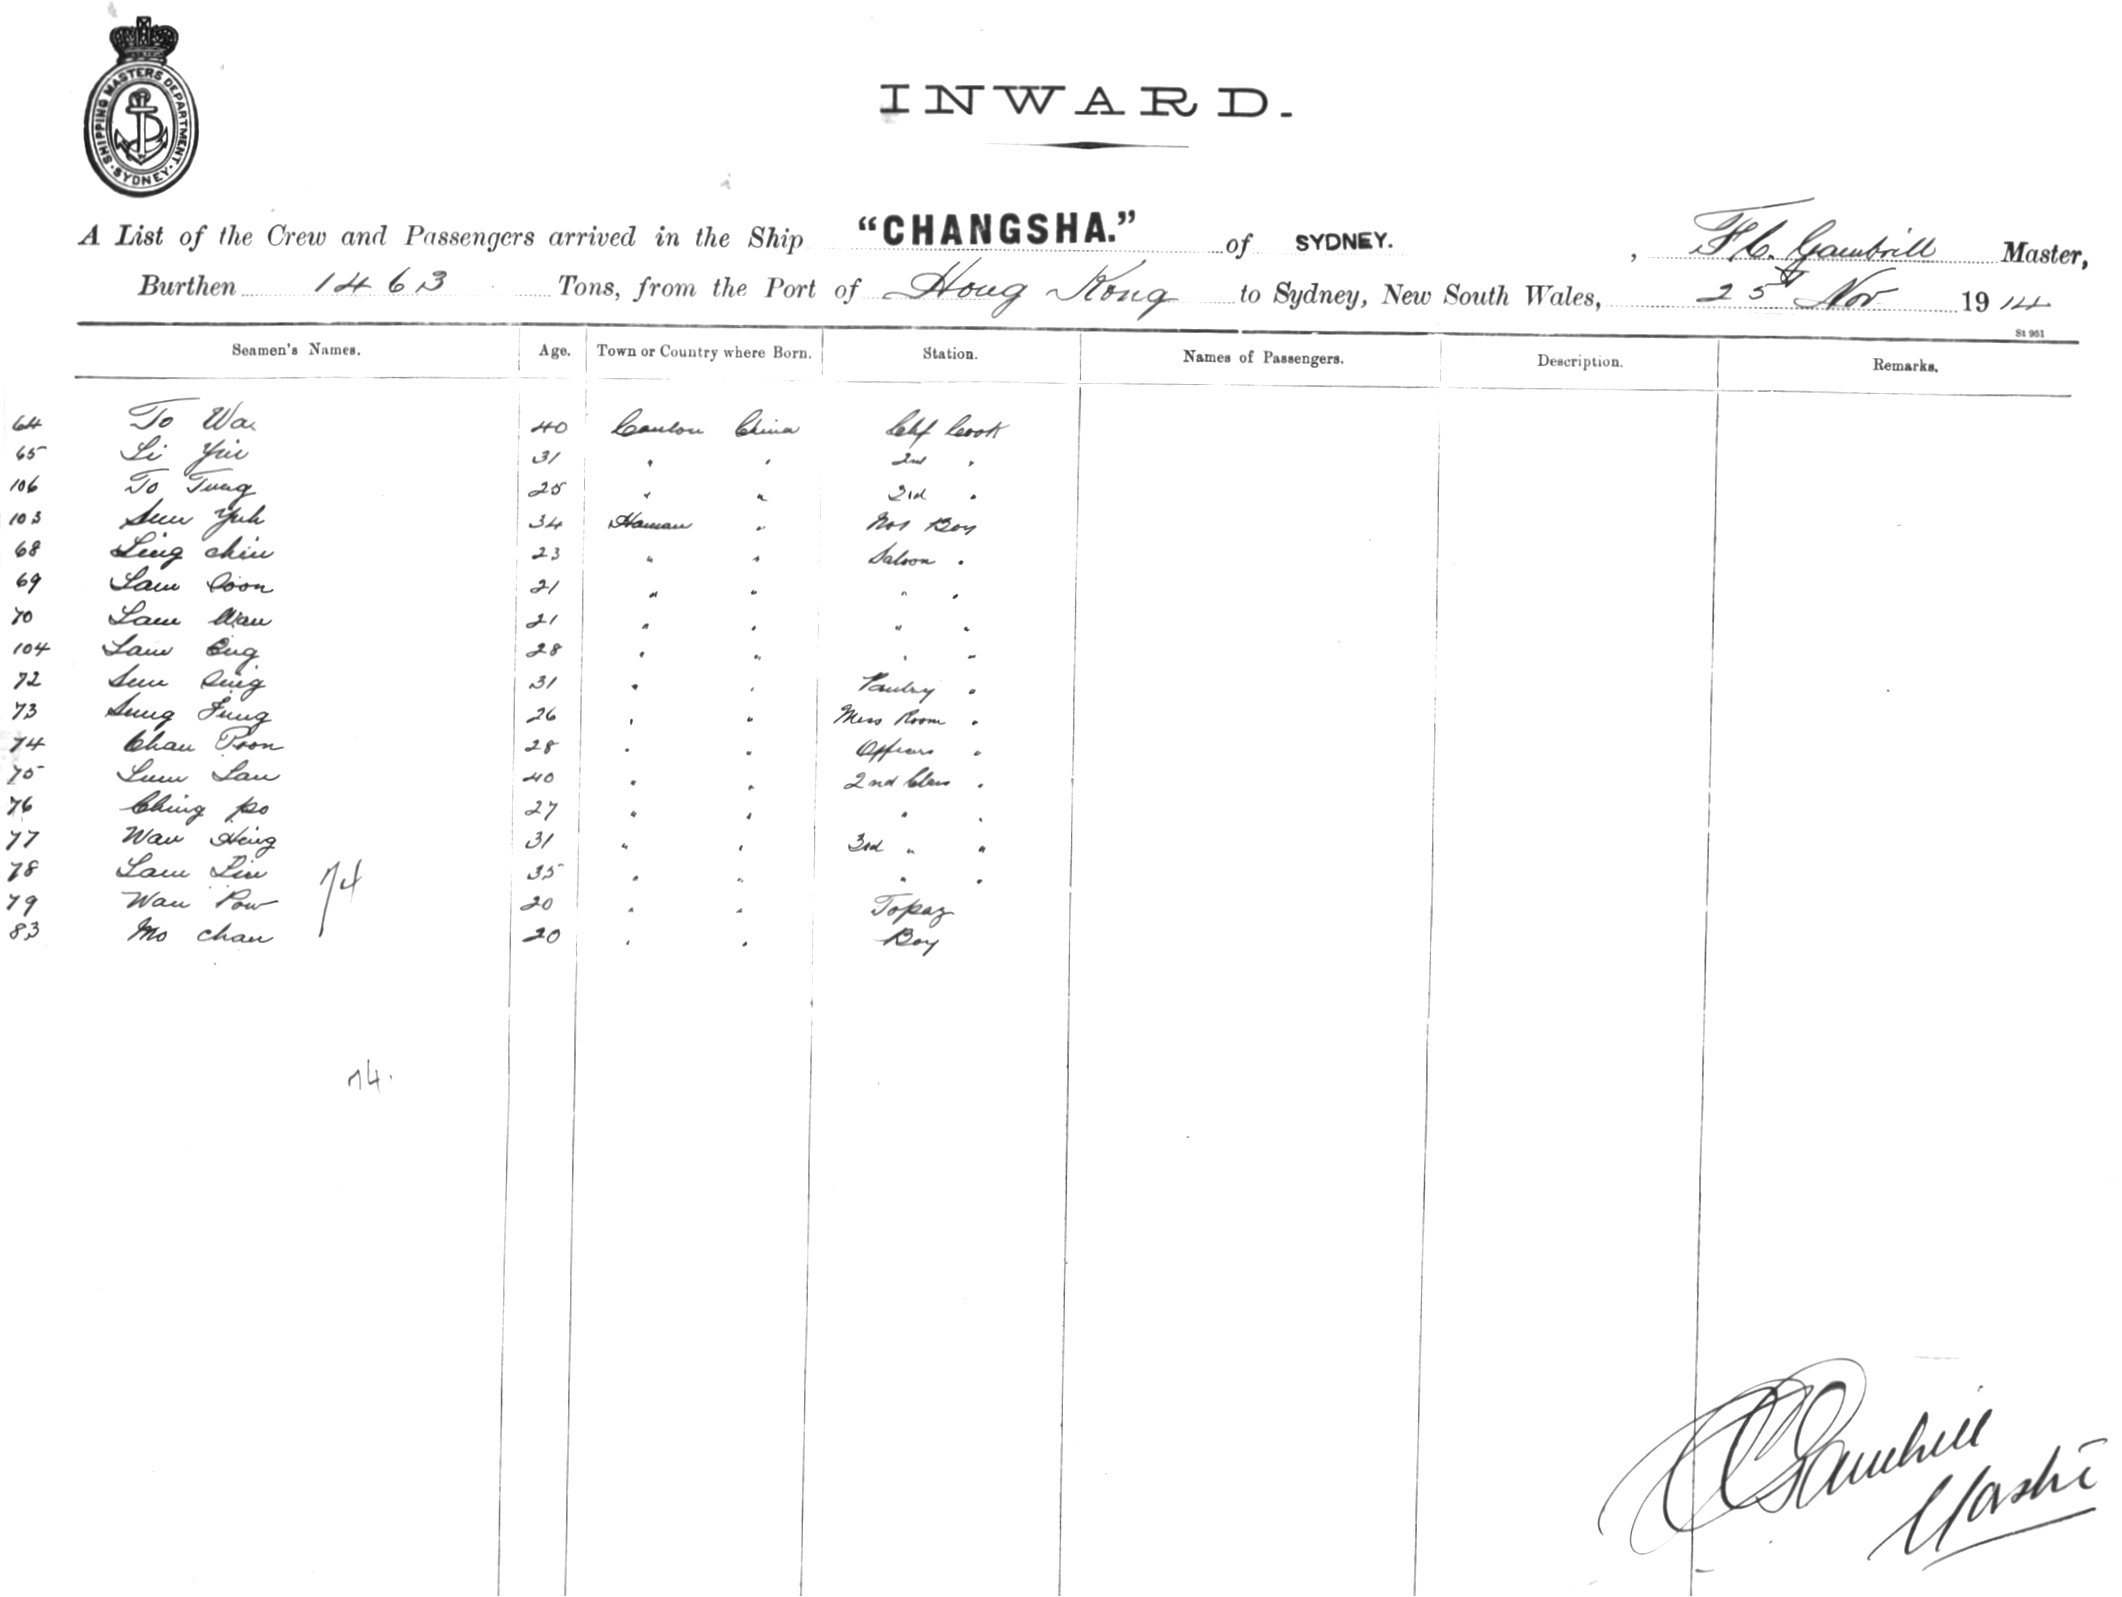 SHIPPING MASTERS DEPARTMENT · SYDNEY ·
INWARD.
A List of the Crew and Passengers arrived in the Ship "CHANGSHA." of SYDNEY. , F. C. Gambrill Master,
Burthen 1463 Tons, from the Port of Hong Kong to Sydney, New South Wales, 25 Nov 1914
St 961
Seamen's Names. Age. Town or Country where Born. Station. Names of Passengers. Description. Remarks.
64 To Wa 40 Canton China Chf Cook
65 Li Yui 31 " " 2nd "
106 To Tung 25 " " 3rd "
103 Sum Yuk 34 Hainan " No1 Boy
68 Ling Chin 23 " " Saloon "
69 Lam Soon 21 " " " "
70 Lam Wan 21 " " " "
104 Lam 28 " " " "
72 Sum 31 " " Pantry "
73 Sung Fung 26 " " Mess Room "
74 Chan Poon 28 " " Officers "
75 Lum San 40 " " 2nd Class "
76 Ching Po 27 " " " "
77 Wan Hing 31 " " 3rd " "
78 Lam Lin 35 " " " "
74
79 Wan Pow 20 " " Topaz
83 Mo Chan 20 " " Boy
74.
Gambrill
Master